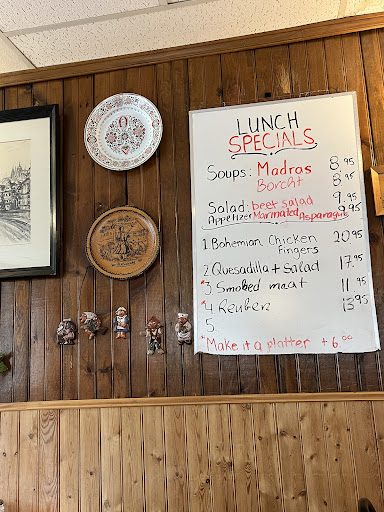 LUNCH
SPECIALS
Soups: Madras 8.95
Borcht 8.95
Salad: beet salad 9.95
Appetizer Marinated Asparagus 9.95
1 Bohemian Chicken Fingers 20.95
2 Quesadilla + Salad 17.95
*3 Smoked meat 11.95
*4 Reuben 13.95
5
*Make it a platter +6.00